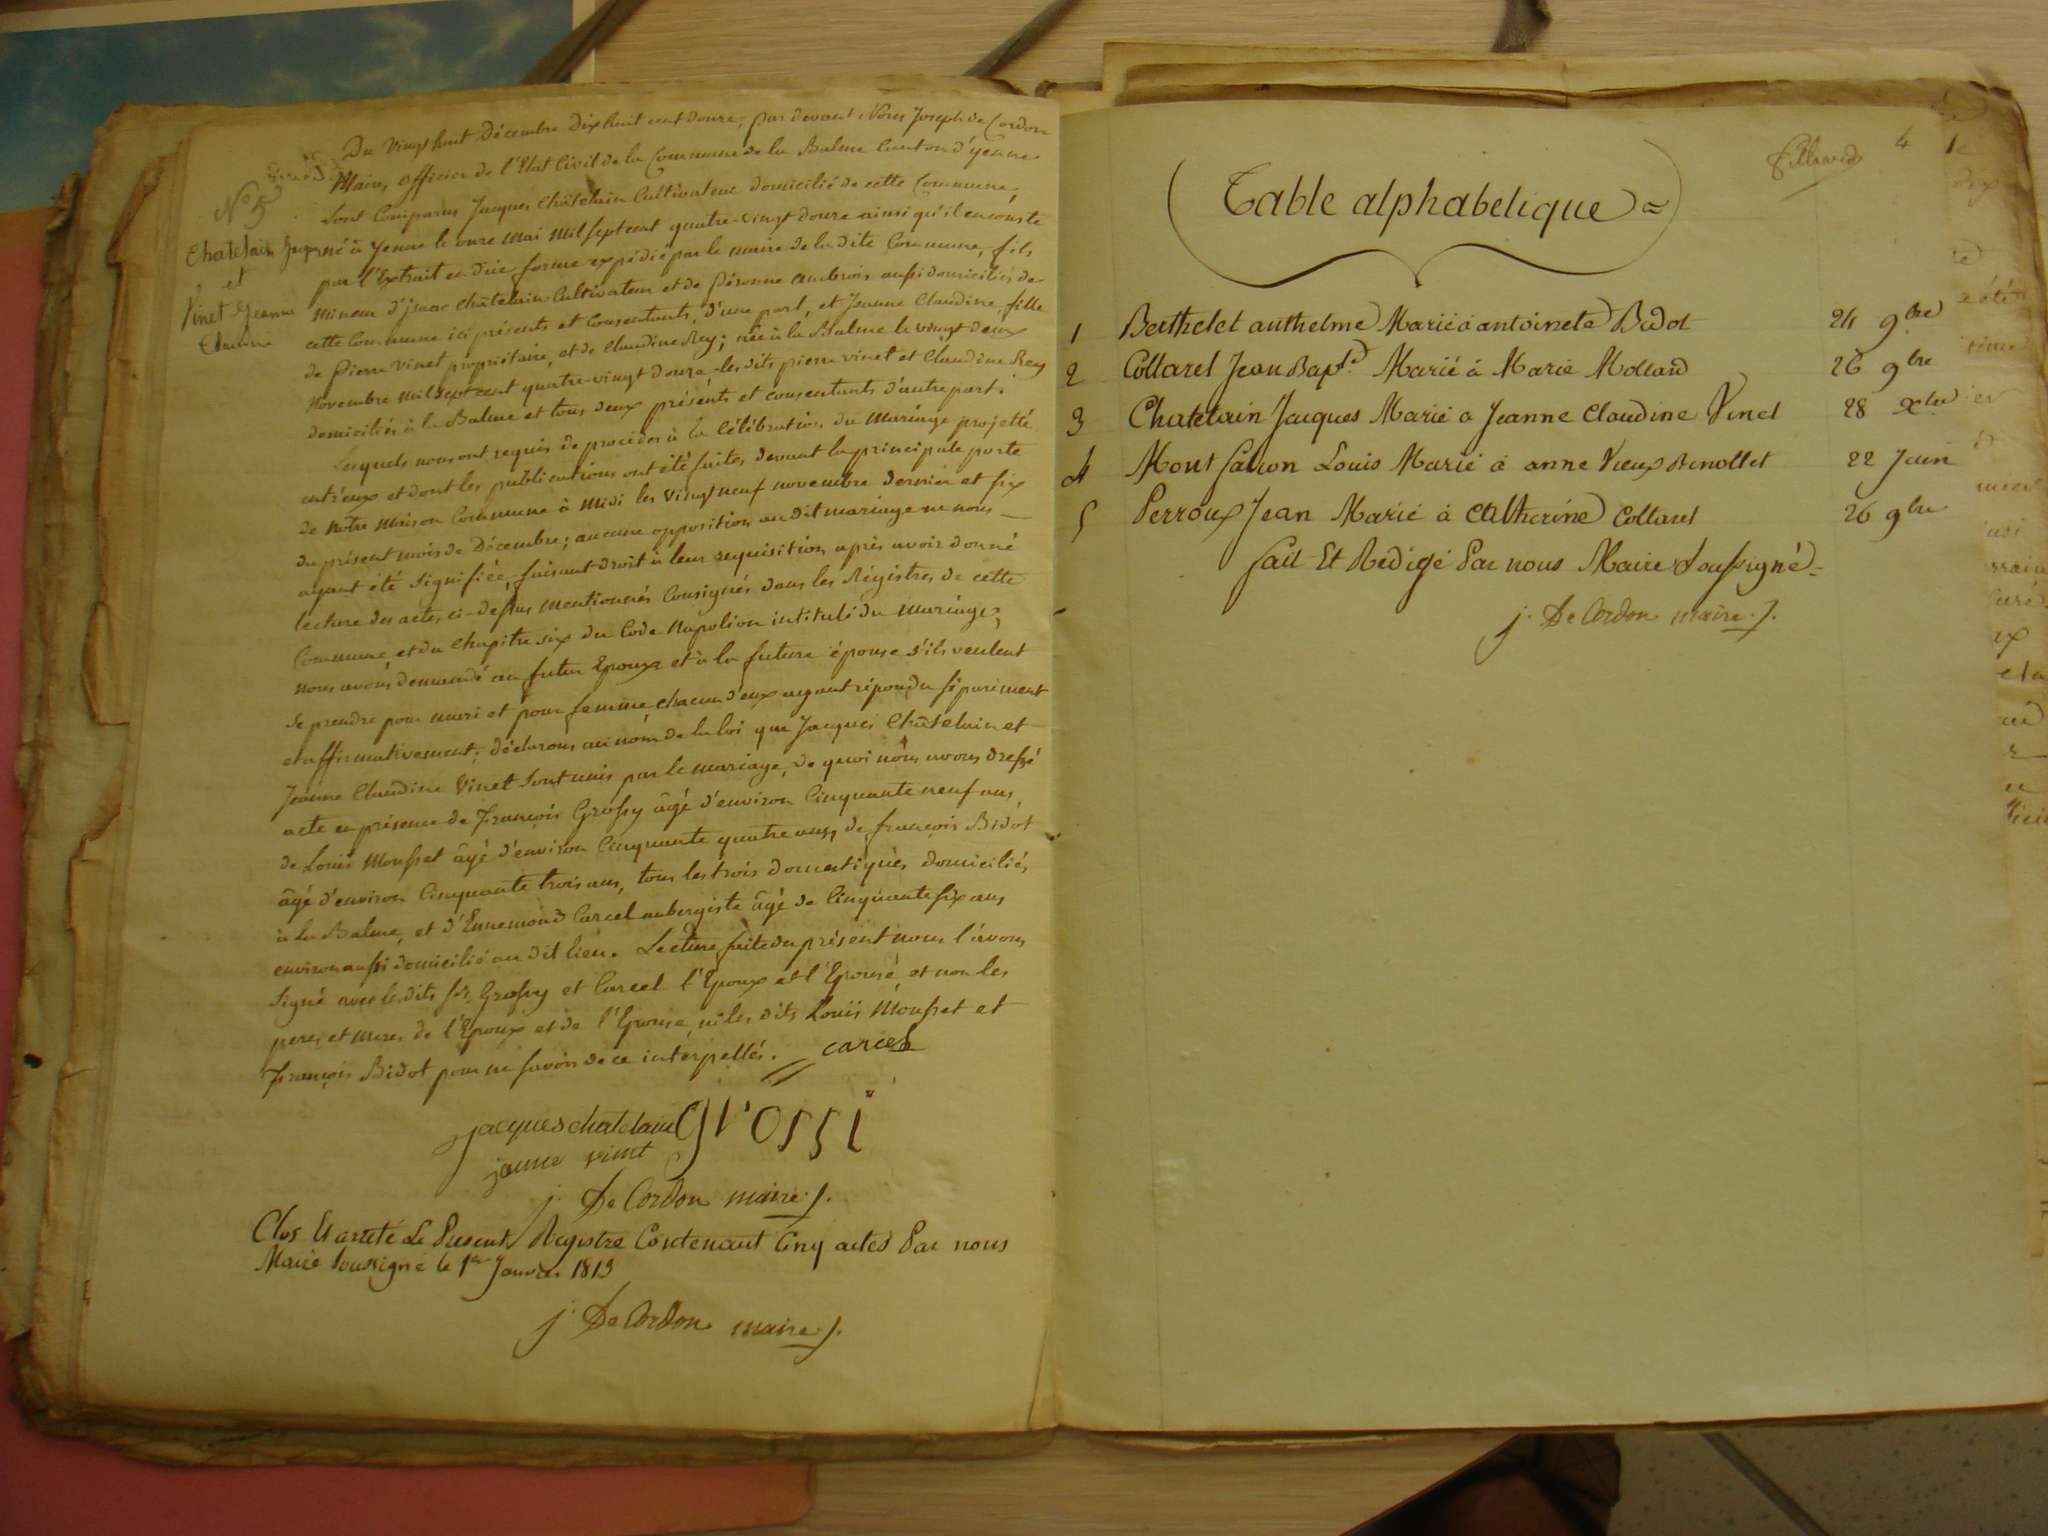 Du Vingt huit Décembre Dix huit cent douze, par devant Nous Joseph De Cordon
Maire, officier de l'Etat Civil de la Commune de la Balme Canton d'yenne
Sont Comparus Jacques Châtelain Cultivateur domicilié de cette Commune,
né à yenne le onze Mai Mil sept cent quatre-vingt douze ainsi qu'il en conste
par l'Extrait en due forme expédié par le maire de la dite Commune, fils
mineur d'jsaac Châtelain Cultivateur et de Péronne Ambrois aussi domiciliés de
cette Commune ici présents et Consentants, d'une part, et Jeanne Claudine, fille
de Pierre Vinet propriétaire, et de Claudine Rey; née à la Balme le vingt deux
Novembre mil sept cent quatre-vingt douze les dits pierre vinet et Claudine Rey
domiciliés à la Balme et tous deux présents et consentants d'autre part.
Lesquels nous ont requis de procéder à la Célébration du Mariage projetté
entr'eux et dont les publications ont été faites devant la principale porte
de notre Maison Commune à Midi les Vingt neuf novembre dernier et six
du présent mois de Décembre; aucune opposition au dit mariage ne nous
ayant été signifiée, faisant droit à leur requisition, après avoir donné
lecture des actes, ci-dessus mentionnés Consignés dans les Régistres de cette
Commune, et du Chapitre six du Code Napoléon intitulé du Mariage,
nous avons demandé au futur Epoux et à la future épouse s'ils veulent
se prendre pour mari et pour femme chacun d'eux ayant répondu séparément
et affirmativement, déclarons au nom de la loi que Jacques Châtelain et
Jeanne Claudine Vinet sont unis par le mariage, de quoi nous avons dressé
acte en présence de François Grossy âgé d'environ Cinquante neuf ans,
de Louis Mousset âgé d'environ Cinquante quatre ans, de françois Bidot
âgé d'environ Cinquante trois ans, tous les trois domestiques domiciliés
à la Balme, et d'Ennemond Carcel aubergiste âgé de Cinquante six ans
environ aussi domicilié au dit lieu. Lecture faite du présent nous l'avons
signé avec les dits Srs Grossy et Carcel l'Epoux et l'Epouse, et non les
peres et meres de l'Epoux et de l'Epouse, ni les dits Louis Mousset et
François Bidot pour ne savoir de ce interpellés.
carcel
No 5
Chatelain Jacques
et
Vinet Jeanne
Claudine
jacques chatelain grossi
janne vinet
j. De Cordon maire
Clos Et arreté Le Present Registre Contenant Cinq actes Par nous
Maire Soussigné le 1er Janvier 1813
j. De Cordon maire
4
Table alphabetique
1 Berthelet anthelme Marié à antoinete Bidot 24 9bre
2 Collaret Jean Bapte Marié à Marie Mollard 26 9bre
3 Chatelain Jacques Marié a Jeanne Claudine Vinet 28 Xbre
4 Mont falcon Louis Marié à anne Vieux 22 Juin
5 Perroux Jean Marié à Catherine Collaret 26 9bre
fait Et Redigé Par nous Maire Soussigné
j. De Cordon maire